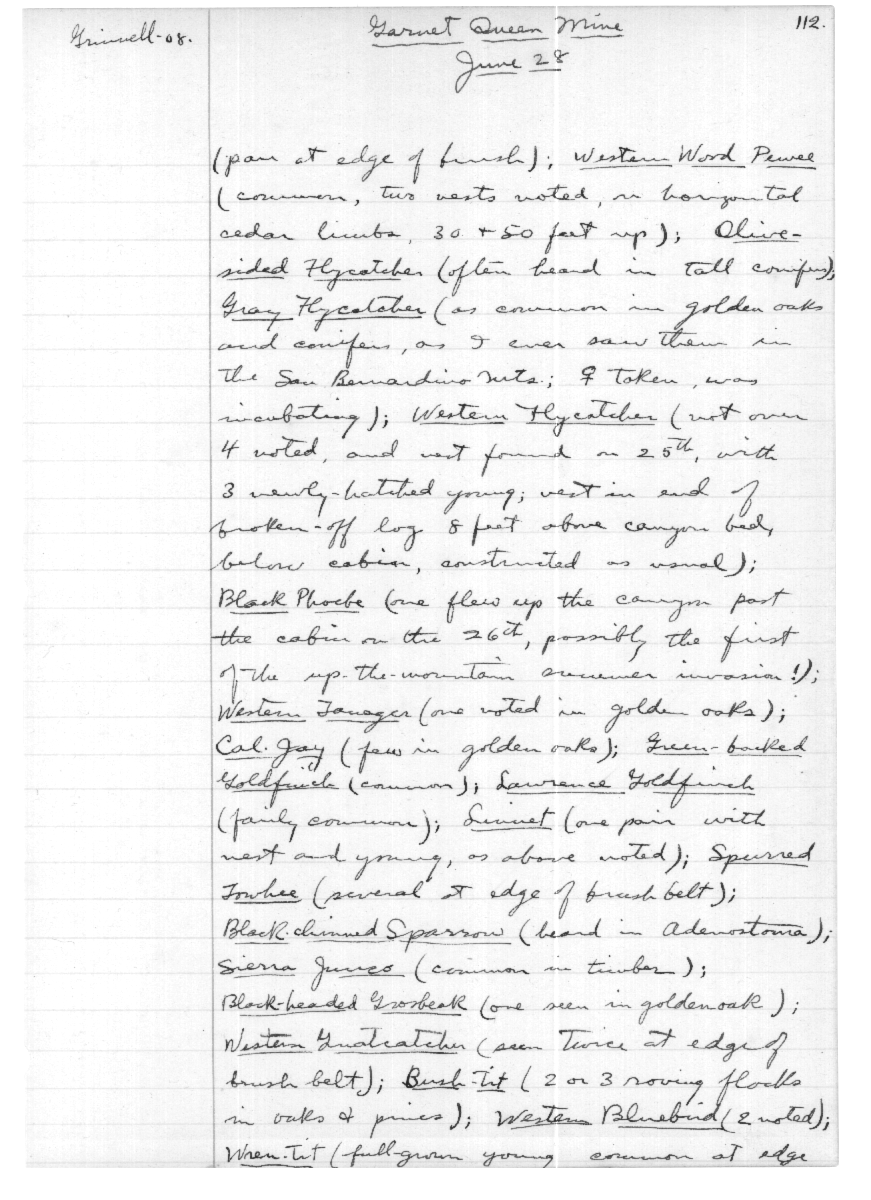 Grinnell-08.
Garnet Queen Mine
112.
June 28
(pair at edge of brush); Western Wood Pewee
(common, two nests noted, on horizontal
cedar limbs, 30 + 50 feet up); Olive-
sided Flycatcher (often heard in tall conifers);
Gray Flycatcher (as common in golden oaks
and conifers, as I ever saw them in
the San Bernardino Mts.; ♀ taken, was
incubating); Western Flycatcher (not over
4 noted, and nest found on 25th, with
3 newly-hatched young; nest in end of
broken-off log 8 feet above canyon bed,
below cabin, constructed as usual);
Black Phoebe (one flew up the canyon past
the cabin on the 26th, possibly the first
of the up-the-mountain summer invasion!);
Western Tanager (one noted in golden oaks);
Cal. Jay (few in golden oaks); Green-backed
Goldfinch (common); Lawrence Goldfinch
(fairly common); Linnet (one pair with
nest and young, as above noted); Spurred
Towhee (several at edge of brush belt);
Black-chinned Sparrow (heard in Adenostoma);
Sierra Junco (common in timber);
Black-headed Grosbeak (one seen in golden oak);
Western Gnatcatcher (seen twice at edge of
brush belt); Bush-Tit (2 or 3 roving flocks
in oaks & pines); Western Bluebird (2 noted);
Wren-Tit (full-grown young common at edge